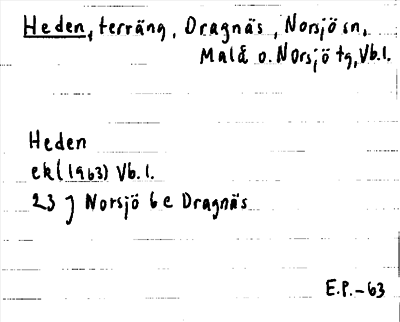 Heden, terräng, Dragnäs, Norsjö sn,
Malå o. Norsjö tg, Vb.l.
Heden
ek (1963) Vb.l.
23 J Norsjö 6 e Dragnäs
E.P.-63